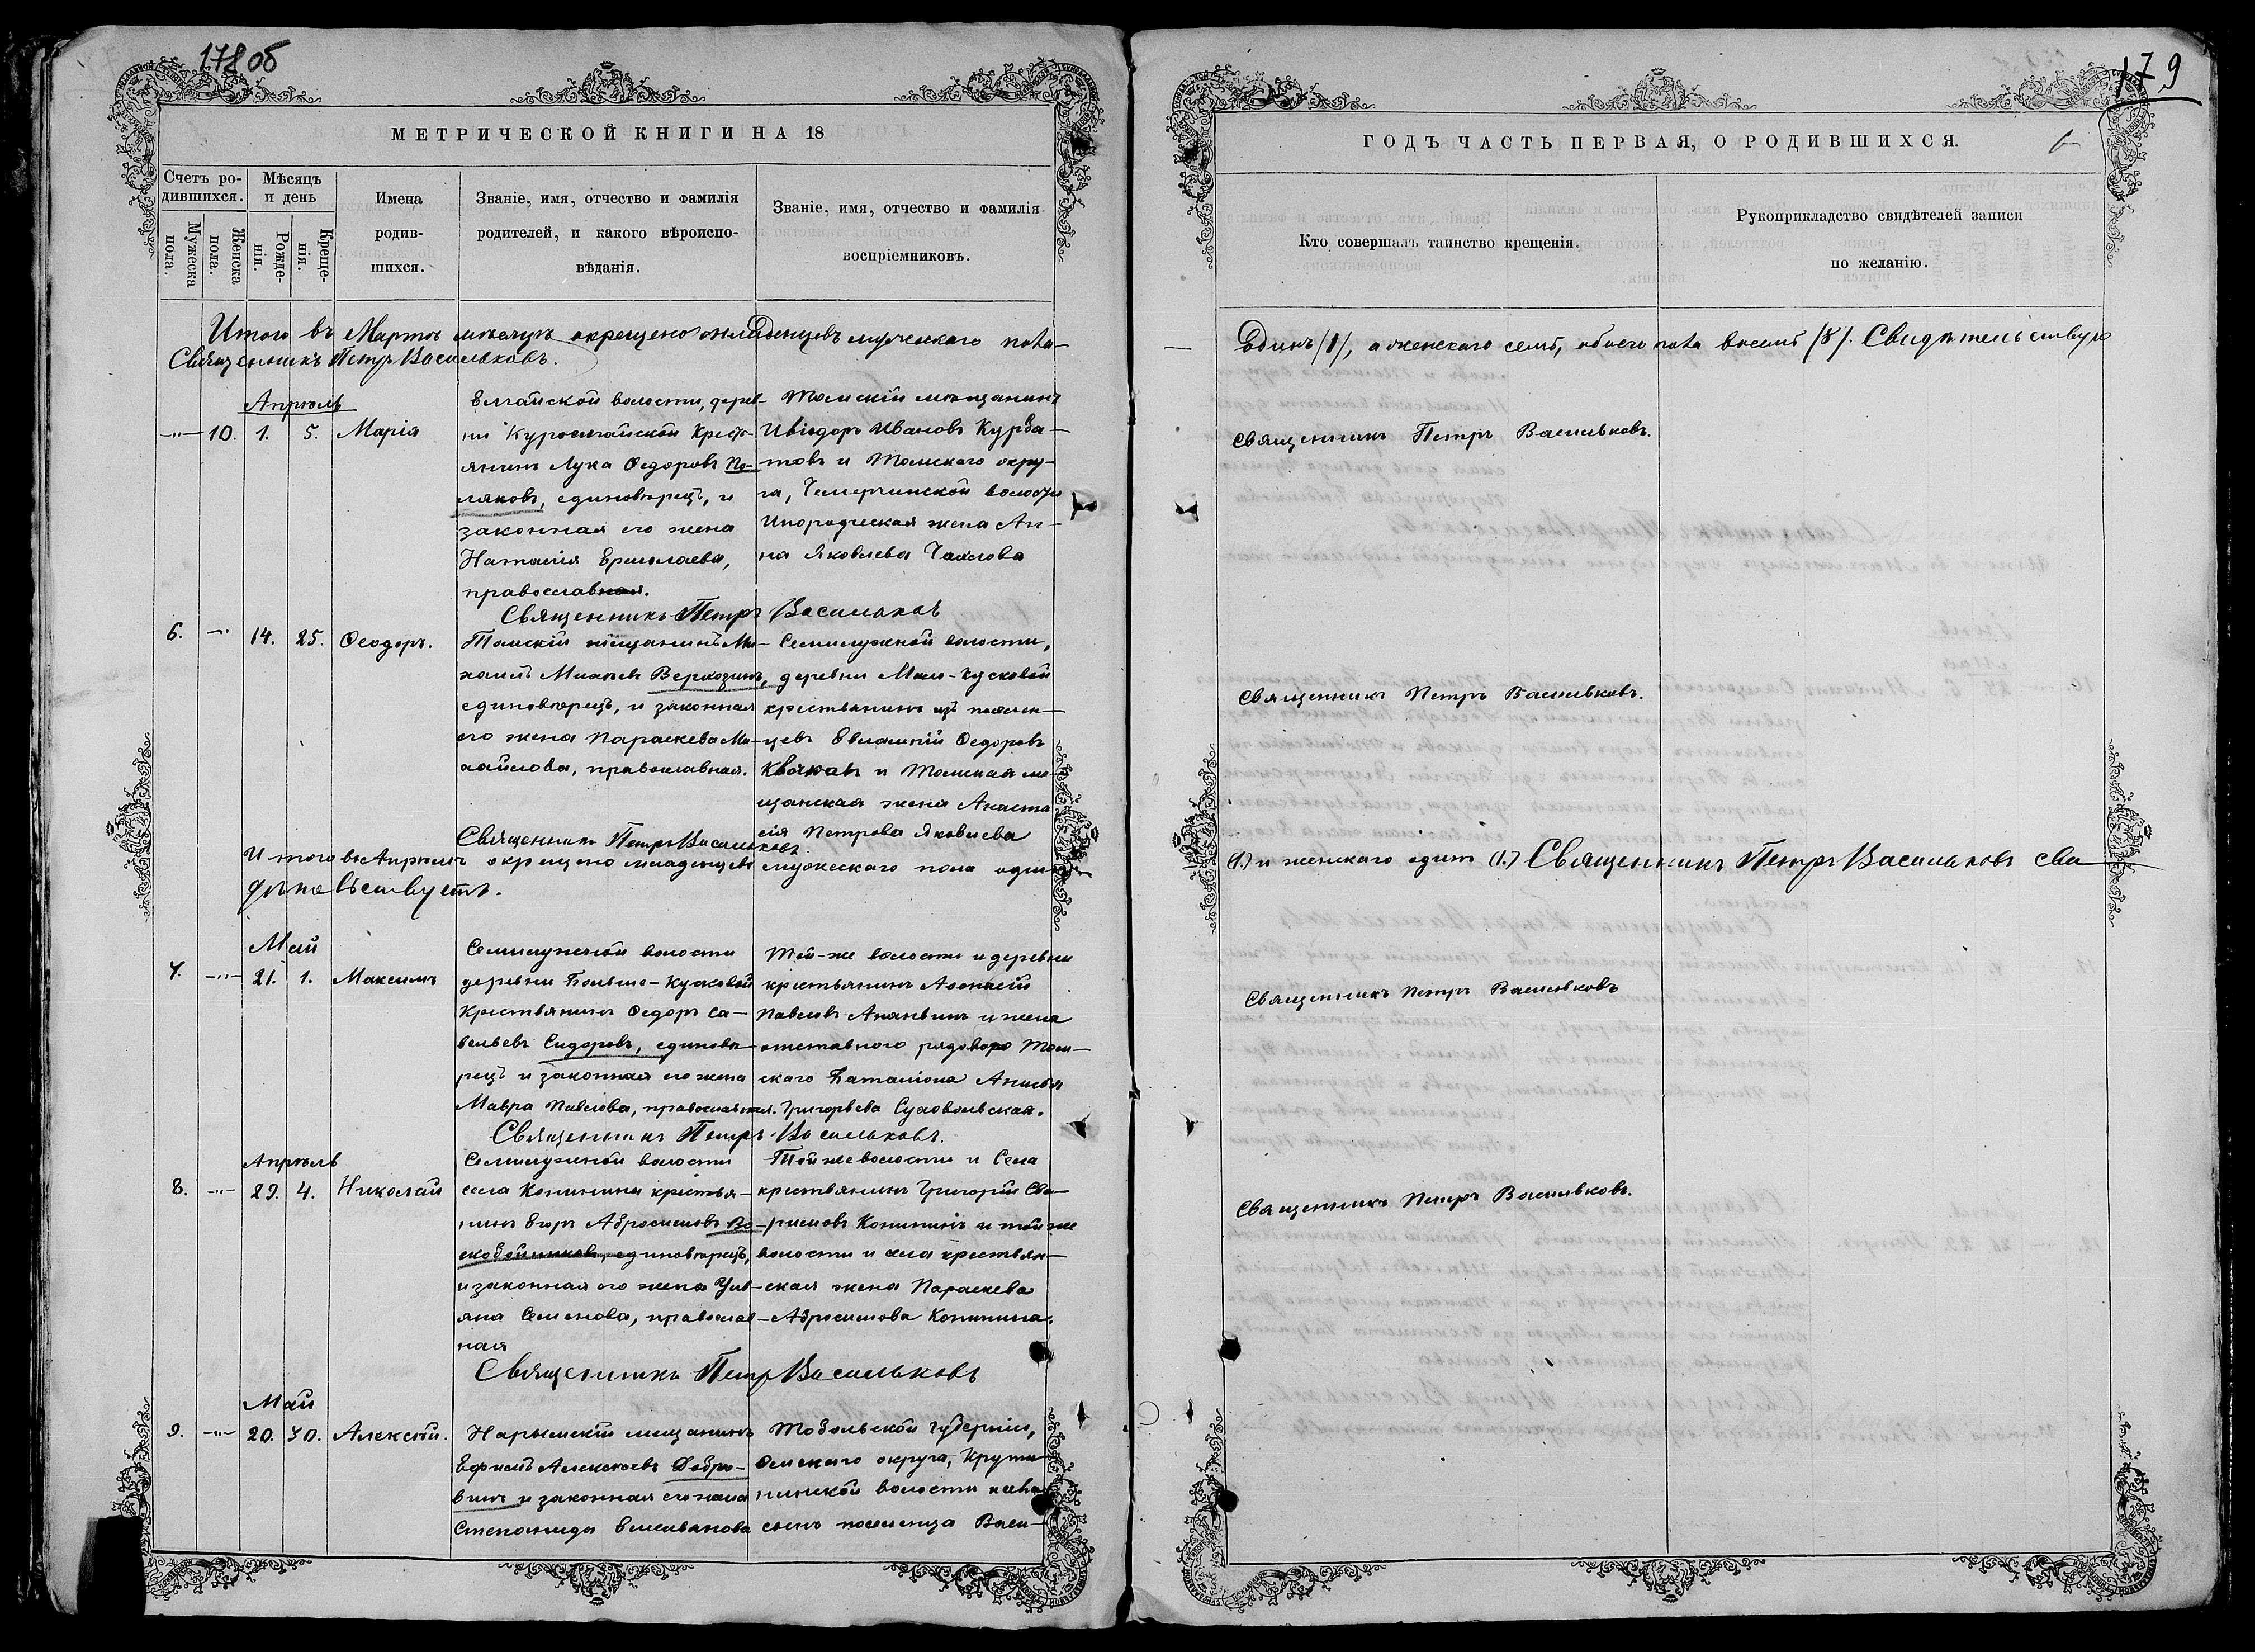 178 об
МЕТРИЧЕСКОЙ КНИГИ НА 18
Счетъ ро-
дившихся.
Мужеска
пола.
Женска
пола.
Мѣсяцъ
и день
Рожде-
нія.
Креще-
нія.
Имена
родив-
шихся.
Званіе, имя, отчество и фамилія
родителей, и какого вѣроиспо-
вѣданія.
Званіе, имя, отчество и фамилія
воспріемниковъ.
Итого въ Мартѣ мѣсяцѣ окрещено младенцевъ мужескаго пола
Священникъ Петръ Васильковъ.
Апрѣль
10. 1. 5. Марія
волости, дерев-
ни Крестъ-
янинъ Лука Ѳедоровъ По-
ляковъ, единовѣрецъ, и
законная его жена
Наталія Ермолаева,
православная.
Томскій мѣщанинъ
Ивановъ Курба-
товъ и Томскаго окру-
га, волости
Инородческая жена Ан-
на Яковлева
Священникъ Петръ Васильковъ
6. 14. 25. Ѳеодоръ.
Томскій мѣщанинъ Ми-
хаилъ Михѣевъ Верхозинъ,
единовѣрецъ, и законная
его жена Параскева Ми-
хайлова, православная.
Семилужной волости,
деревни Мало-Кусковой
крестьянинъ изъ поселен-
цевъ Евлампій Ѳедоровъ
и Томская мѣ-
щанская жена Анаста
сія Петрова Яковлева
Священникъ Петръ Васильковъ.
Итого въ Апрѣлѣ окрещено младенцевъ мужескаго пола одинъ
дѣтельствуетъ.
Май
7. 21. 1. Максимъ
Семилужной волости
деревни Больше-Кусковой
Крестьянинъ Ѳедоръ Са-
вельевъ Сидоровъ, единовѣ-
рецъ и законная его жена
Мавра Павлова, православная.
Той-же волости и деревни
крестьянинъ Аѳонасій
Павловъ Ананьинъ и жена
отставного рядового Том-
скаго Баталіона Анисья
Григорьева Суховольская.
Священникъ Петръ Васильковъ.
Апрѣль
8. 29. 4. Николай
Семилужной волости
села Конинина крестья-
нинъ Егоръ Абросимовъ Во-
скобойниковъ, единовѣрецъ,
и законная его жена Уль-
яна Семенова, православ-
ная
Той же волости и Села
крестьянинъ Григорій
Конининъ и той же
волости и села крестьян-
ская жена Параскева
Абросимова Конинина.
Священникъ Петръ Васильковъ
Май
9. 20. 30. Алексѣй.
Нарымскій мещанинъ
Ефимъ Алексѣевъ Добры-
нинъ и законная его жена
Степанида
Тобольской губерніи,
Омскаго округа, Крути-
нинской волости
сынъ поселенца Васи-
179
ГОДЪ ЧАСТЬ ПЕРВАЯ, О РОДИВШИХСЯ.
Кто совершалъ таинство крещенія.
Рукоприкладство свидѣтелей записи
по желанію.
Единъ /1/, а женскаго семь, обоего пола восемь /8/. Свидѣтельствую
Священникъ Петръ Васильковъ.
Священникъ Петръ Васильковъ.
(1.) и женскаго одинъ (1.) Священникъ Петръ Васильковъ сви
Священникъ Петръ Васильковъ
Священникъ Петръ Васильковъ.